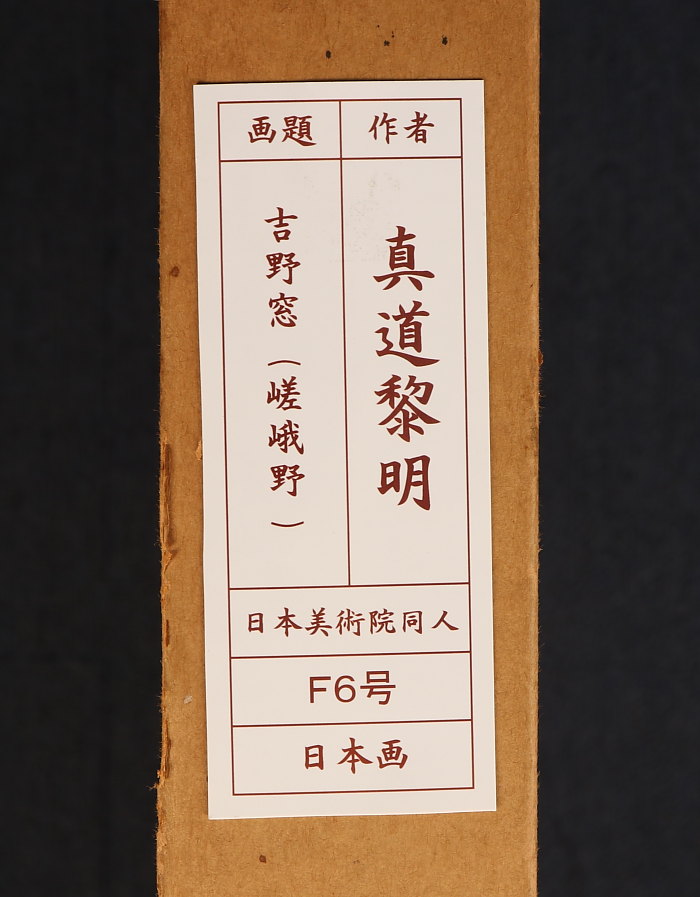 作者
真道黎明
画題
吉野窓（嵯峨野）
日本美術院同人
F6号
日本画